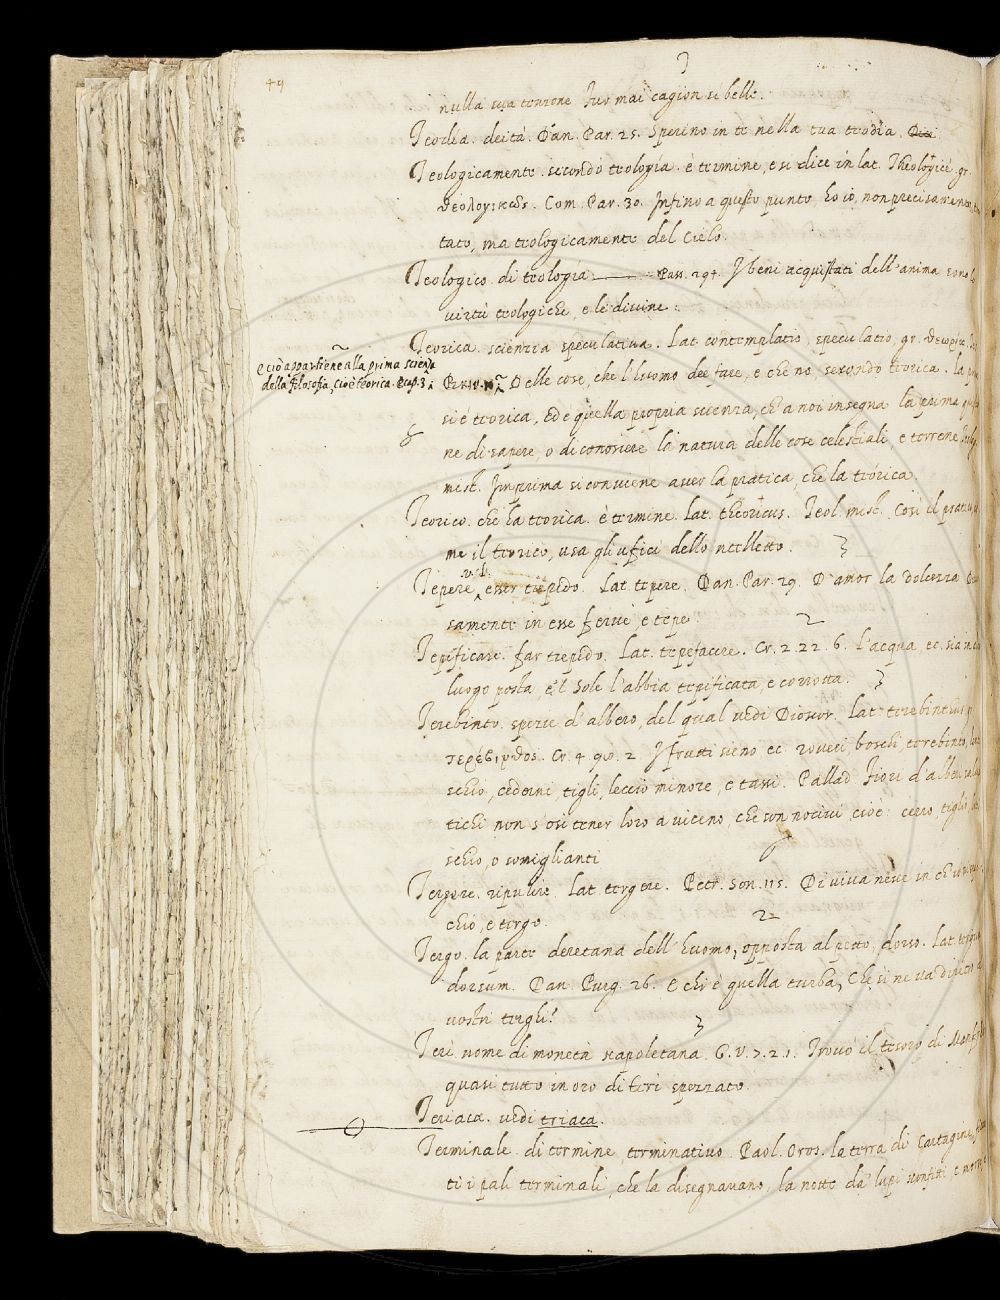 49
nulla sua tenzone Fur mai cagion sì belle.
Teodía. deità. Dan. Par. 25. Sperino in te nella tua teodía.
Teologicamente. secondo teologia. è termine, e si dice in lat. Theologicè, gr.
θεολογικῶς. Com. Par. 30. Infino a questo punto ho io, non precisamente
tato, ma teologicamente del Cielo.
Teologico. di teologia. Pass. 294. I beni acquistati dell'anima sono le
virtù teologiche, e le divine.
Teorica. scienzia speculativa. Lat. contemplatio, speculatio, gr. θεωρία.
e ciò appartiene alla prima scienza
della filosofia, cioè teorica. e cap. 3.
Delle cose, che l'huomo dee fare, e che no, secondo teorica. la
si è teorica, ed è quella propria scienza, che a noi insegna la prima
ne di sapere, o di conoscere la natura delle cose celestiali, e terrene
mist. Imprima si conviene aver la pratica, che la teórica.
Teorico. che ha teorica. è termine. Lat. theoricus. Teol. mist. Così il pratico
me il teorico, usa gli ufici dello 'ntelletto.
Tepere, esser tiepido. Lat. tepere. Dan. Par. 29. D'amor la dolcezza
samente in esse ferve e tepe. 2
Tepificare. far tiepido. Lat. tepefacere. Cr. 2. 22. 6. l'acqua, ec. sia in
luogo posta, e 'l Sole l'abbia tepificata, e corrotta. 3
Terebinto. spezie d'albero, del qual vedi Dioscor. Lat. terebinthus,
τερέβινθος. Cr. 4. 40. 2. I frutti sieno ec. roveri, boschi, terebinto,
schio, cederni, tigli, leccio minore, e tassi. Pallad. Fiori d'alberi
tichi non s'osi tener loro a vicino, che son nocivi, cioè: cerro, tiglio,
schio, o somiglianti
Tergere. ripulire. Lat. tergere. Petr. Son. 115. Di viva neve in ch'
chio, e tergo. 2
Tergo. la parte deretana dell'huomo, opposta al petto, dorso. Lat.
dorsum. Dan. Purg. 26. E chi è quella turba, Che si ne va diretro a
vostri terghi? 3
Terì. nome di moneta napoletana. G. V. 7. 2. 1. Trovò il tesoro di
quasi tutto in oro di terì spezzato.
Teriaca. vedi triaca.
Terminale. di termine, terminativo. Paol. Oros. la terra di Cartagine,
ti i pali terminali, che la disegnavano, la notte da' lupi sconfitti, e